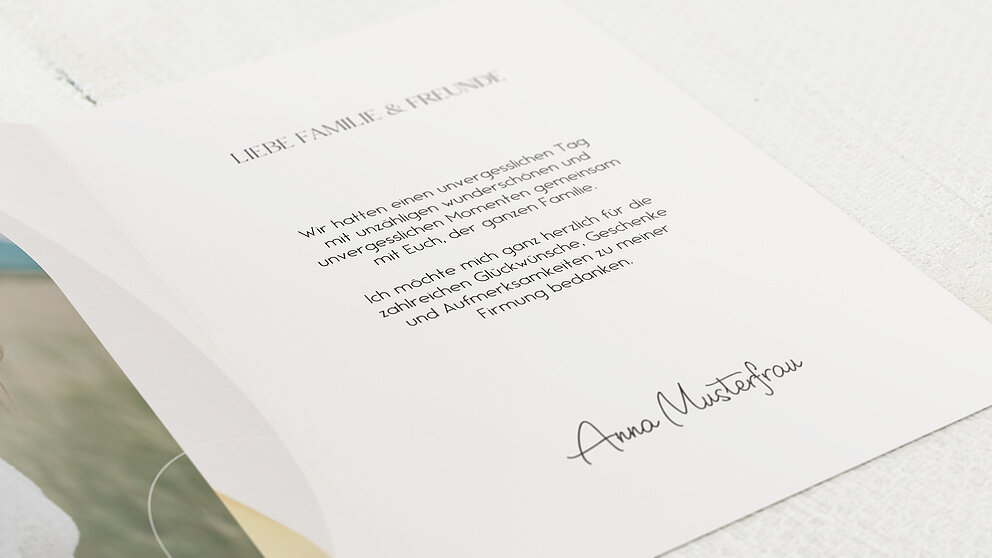 LIEBE FAMILIE & FREUNDE
Wir hatten einen unvergesslichen Tag
mit unzähligen wunderschönen und
unvergesslichen Momenten gemeinsam
mit Euch, der ganzen Familie.
Ich möchte mich ganz herzlich für die
zahlreichen Glückwünsche, Geschenke
und Aufmerksamkeiten zu meiner
Firmung bedanken.
Anna Musterfrau